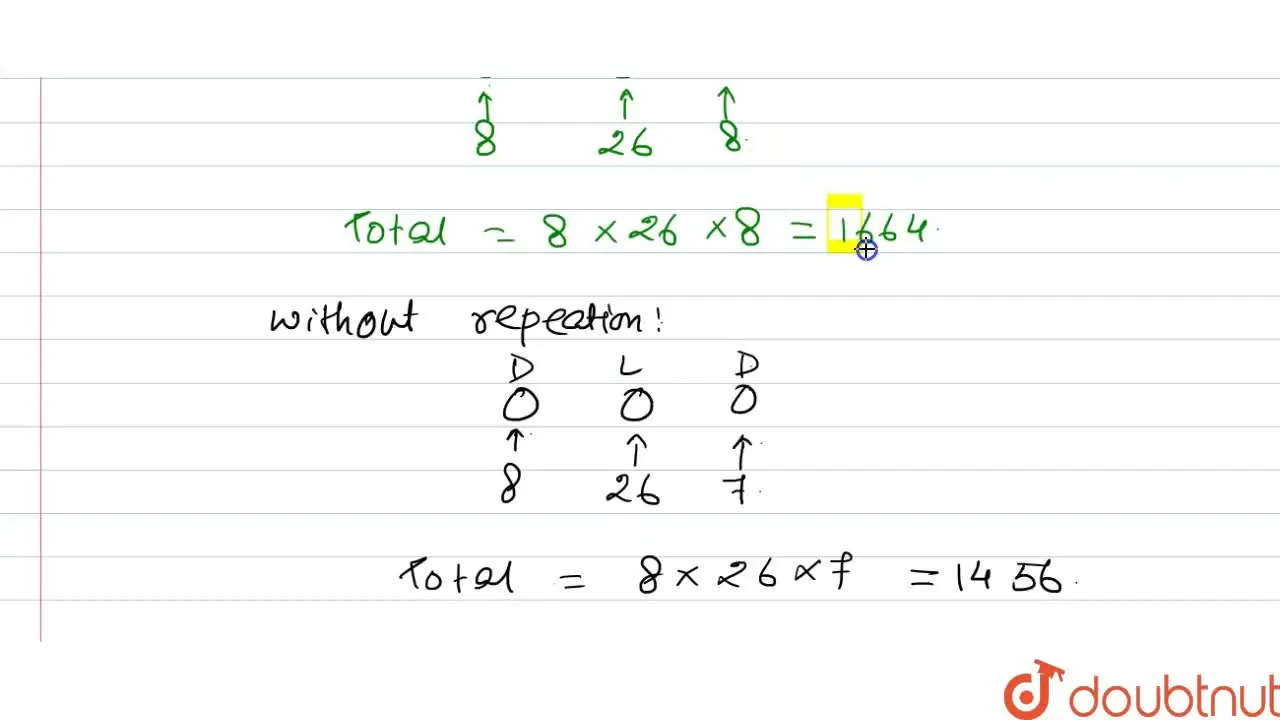 ↑ ↑ ↑
8 26 8
Total = 8 × 26 × 8 = 1664
without repeation:
D L D
O O O
↑ ↑ ↑
8 26 7
Total = 8 × 26 × 7 = 1456
doubtnut